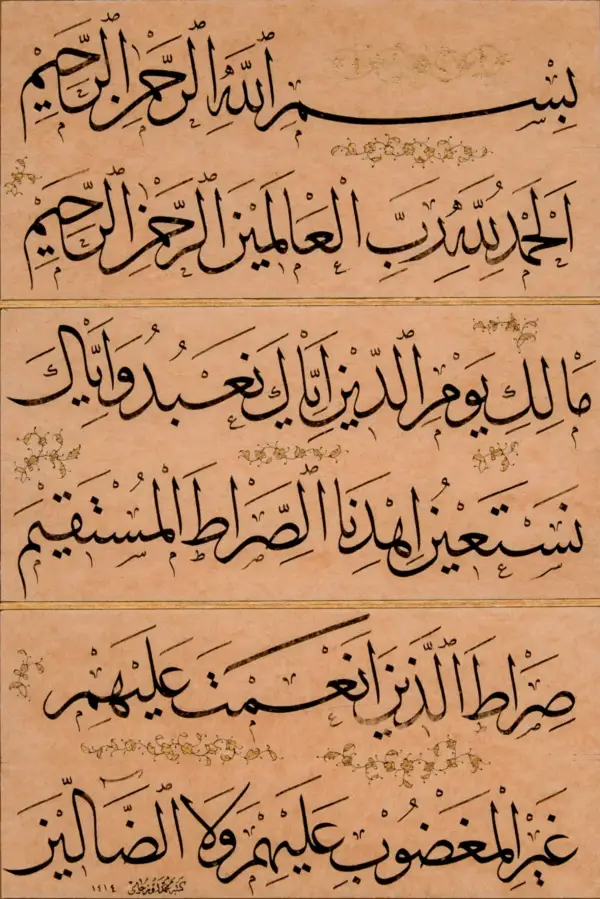 بِسْمِ اللَّهِ الرَّحْمٰنِ الرَّحِيْمِ
اَلْحَمْدُ لِلّٰهِ رَبِّ الْعَالَمِيْنَ الرَّحْمٰنِ الرَّحِيْمِ
مَالِكِ يَوْمِ الدِّيْنِ اِيَّاكَ نَعْبُدُ وَاِيَّاكَ
نَسْتَعِيْنُ اِهْدِنَا الصِّرَاطَ الْمُسْتَقِيْمَ
صِرَاطَ الَّذِيْنَ اَنْعَمْتَ عَلَيْهِمْ
غَيْرِ الْمَغْضُوْبِ عَلَيْهِمْ وَلَا الضَّالِّيْنَ
١٤١٤